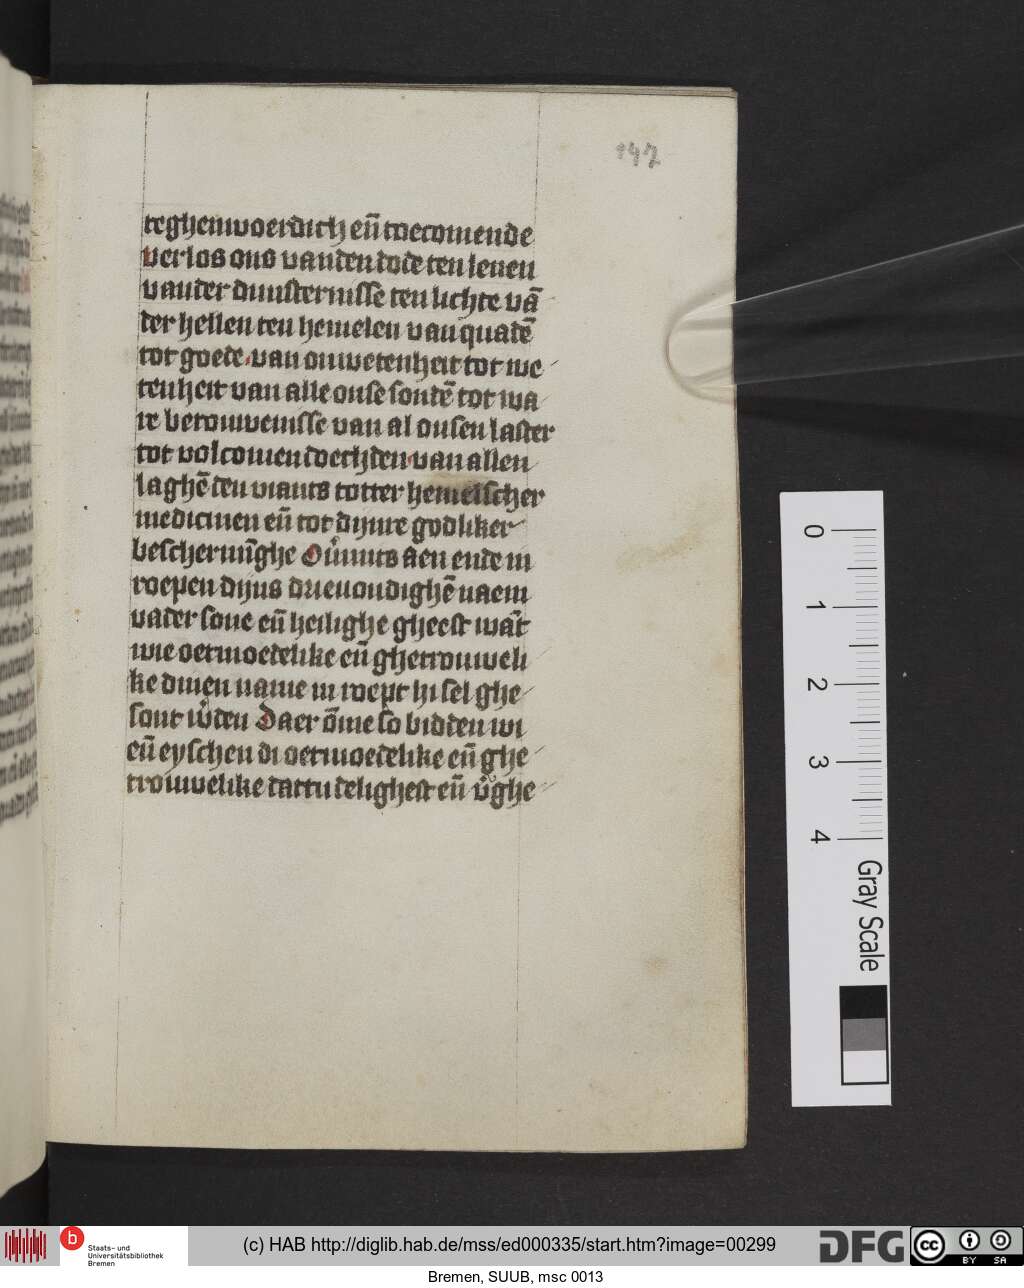 147
teghenwoerdich eñ toecomende
verlos ons vanden dode ten leuen
vander duusternisse ten lichte vā
der hellen ten hemelen van quadē
tot goede van onwetenheit tot we
tenheit van alle onse sondē tot wa
re berouwenisse van al onsen laster
tot volcomen doechden van allen
laghē den viants totter hemelscher
medicinen eñ tot dijnre godliker
bescherminghe aen ende in
roepen dijns drieuoudighē naem
vader sone eñ heilighe gheest wāt
wie oetmoedelike eñ ghetrouweli
ke dinen name in roept hi sel ghe
sont wden Daer ōme so bidden wi
eñ eyschen di oetmoedelike eñ ghe
trouwelike dattu delighest eñ vghe
0
1
2
3
4
Gray Scale
b
Staats- und
Universitätsbibliothek
Bremen
(c) HAB http://diglib.hab.de/mss/ed000335/start.htm?image=00299
DFG
cc
BY SA
Bremen, SUUB, msc 0013